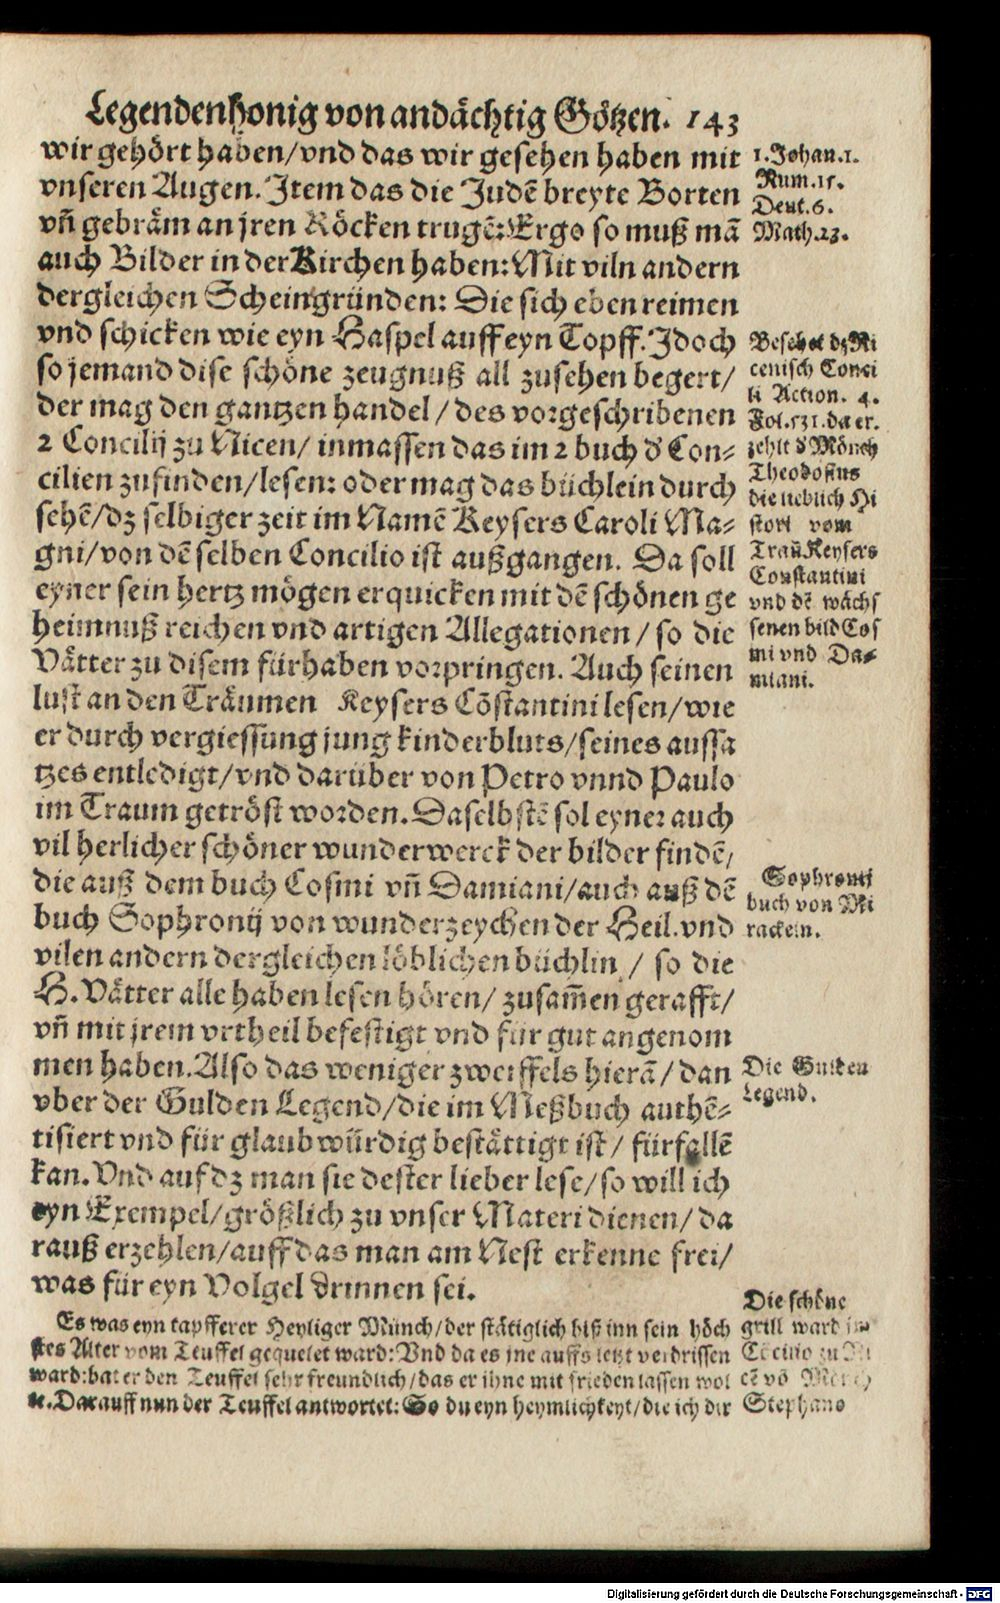 Legendenhonig von andächtig Götzen. 143
wir gehört haben/vnd das wir gesehen haben mit
vnseren Augen. Jtem das die Judẽ breyte Borten
vñ gebräm an jren Röcken trugẽ: Ergo so muß mã
auch Bilder in der Kirchen haben: Mit viln andern
dergleichen Scheingründen: Die sich eben reimen
vnd schicken wie eyn Haspel auff eyn Topff. Jdoch
so jemand dise schöne zeugnuß all zusehen begert/
der mag den gantzen handel/des vorgeschribenen
2 Concilij zu Nicen/ inmassen das im 2 buch d' Con-
cilien zufinden/lesen: oder mag das büchlein durch
sehẽ/dz selbiger zeit im Namẽ Keysers Caroli Ma-
gni/von dẽ selben Concilio ist außgangen. Da soll
eyner sein hertz mögen erquicken mit dẽ schönen ge
heimnuß reichen vnd artigen Allegationen/so die
Vätter zu disem fürhaben vorpringen. Auch seinen
lust an den Träumen Keysers Cõstantini lesen/wie
er durch vergiessung jung kinderbluts/seines aussa
tzes entledigt/vnd darüber von Petro vnnd Paulo
im Traum getröst worden. Daselbstẽ sol eyner auch
vil herlicher schöner wunderwerck der bilder findẽ/
die auß dem buch Cosmi vñ Damiani/auch auß dẽ
buch Sophronij von wunderzeychen der Heil. vnd
vilen andern dergleichen löblichen büchlin/ so die
H. Vätter alle haben lesen hören/ zusam̃en gerafft/
vñ mit jrem vrtheil befestigt vnd für gut angenom
men haben. Also das weniger zweiffels hierã/dan
vber der Gulden Legend/die im Meßbuch authẽ-
tisiert vnd für glaubwürdig bestättigt ist/ fürfallẽ
kan. Vnd auf dz man sie dester lieber lese/so will ich
eyn Exempel/größlich zu vnser Materi dienen/da
rauß erzehlen/auff das man am Nest erkenne frei/
was für eyn Volgel drinnen sei.
Es was eyn tapfferer Heyliger Münch/der stätiglich biß inn sein höch
stes Alter vom Teuffel gequelet ward: Vnd da es jne auffs letzt verdrissen
ward: bat er den Teuffel sehr freundlich/das er ihne mit frieden lassen wol
te. Darauff nun der Teuffel antwortet: So du eyn heymlichkeyt/die ich dir
1. Johan. 1.
Num. 15.
Deut. 6.
Math. 23.
Besehet dz Ni
cenisch Conci
li Action. 4.
Fol. 531. da er-
zehlt d' Mönch
Theodosius
die lieblich Hi
stori vom
Traũ Keysers
Constantini
vnd dẽ wächs
senen bild Cos
mi vnd Da-
miani.
Sophronij
buch von Mi
rackeln.
Die Gulden
Legend.
Die schöne
grill ward im
Cõcilio zu Ni
cẽ võ Mönch
Stephano
Digitalisierung gefördert durch die Deutsche Forschungsgemeinschaft - DFG